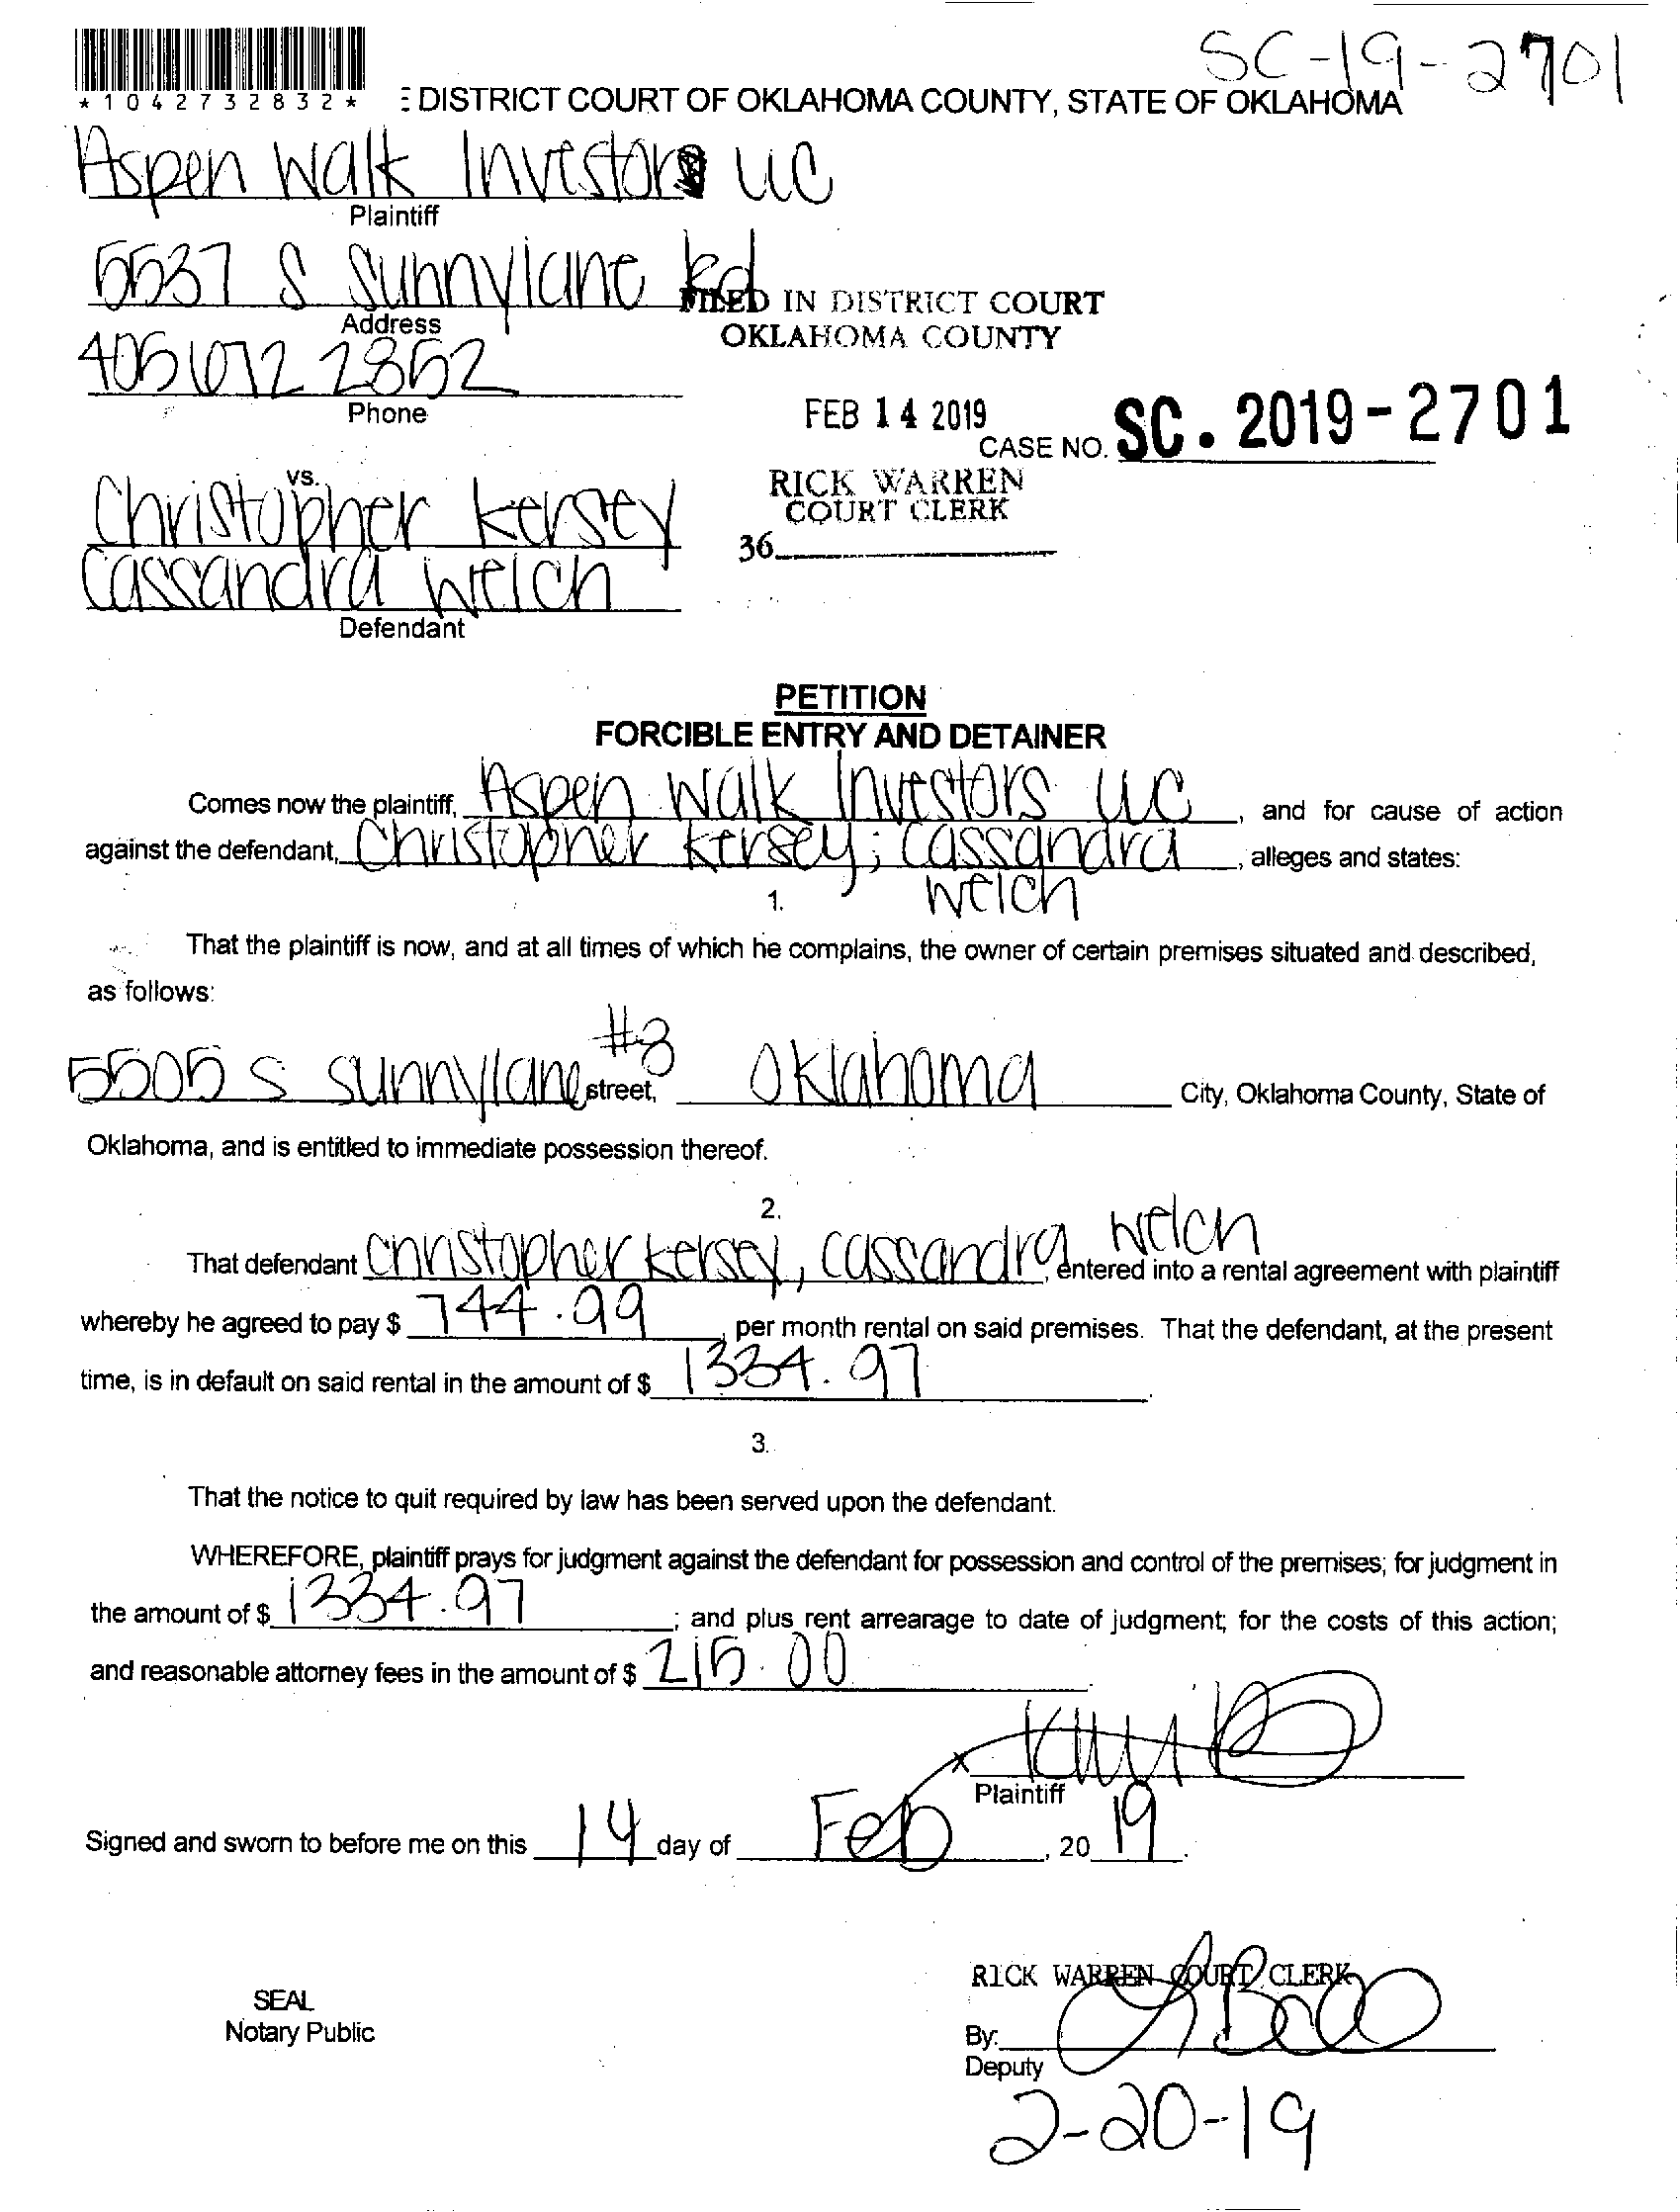 SC-19-2701
*1042732832* DISTRICT COURT OF OKLAHOMA COUNTY, STATE OF OKLAHOMA
Aspen Walk Investors LLC
Plaintiff
5537 S Sunnylane Rd
Address
FILED IN DISTRICT COURT
OKLAHOMA COUNTY
405 672 2852
Phone
FEB 14 2019
CASE NO. SC. 2019-2701
vs.
RICK WARREN
COURT CLERK
Christopher Kersey
36
Cassandra Welch
Defendant
PETITION
FORCIBLE ENTRY AND DETAINER
Comes now the plaintiff, Aspen Walk Investors LLC, and for cause of action
against the defendant, Christopher Kersey; Cassandra Welch, alleges and states:
1.
That the plaintiff is now, and at all times of which he complains, the owner of certain premises situated and described,
as follows:
5505 S Sunnylane #3 street, Oklahoma City, Oklahoma County, State of
Oklahoma, and is entitled to immediate possession thereof.
2.
That defendant Christopher Kersey, Cassandra Welch, entered into a rental agreement with plaintiff
whereby he agreed to pay $ 744.99, per month rental on said premises. That the defendant, at the present
time, is in default on said rental in the amount of $ 1334.97.
3.
That the notice to quit required by law has been served upon the defendant.
WHEREFORE, plaintiff prays for judgment against the defendant for possession and control of the premises; for judgment in
the amount of $ 1334.97; and plus rent arrearage to date of judgment; for the costs of this action;
and reasonable attorney fees in the amount of $ 215.00
X
Plaintiff
Signed and sworn to before me on this 14 day of Feb, 20 19.
RICK WARREN COURT CLERK
SEAL
Notary Public
By:
Deputy
2-20-19